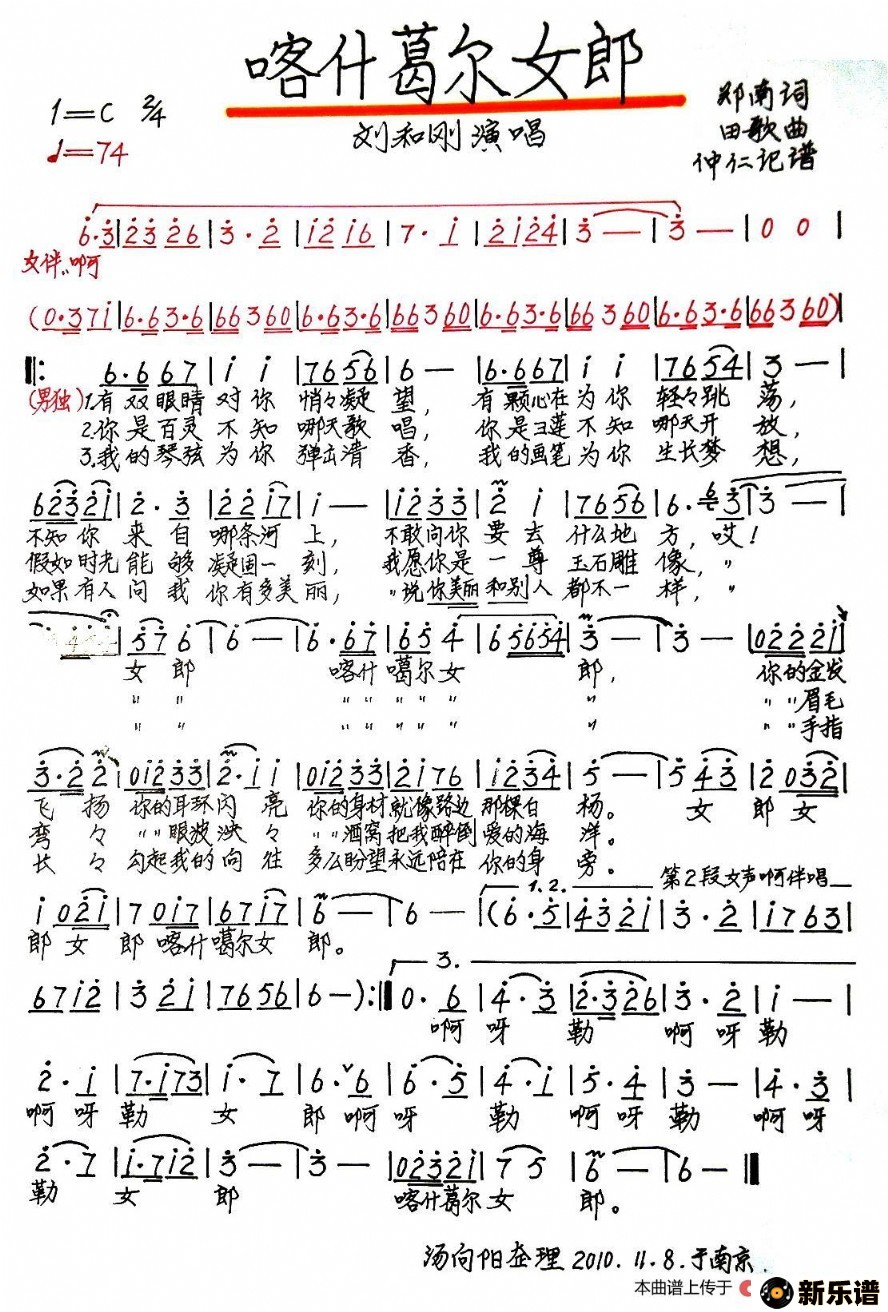 喀什葛尔女郎
1=C 2/4
♩=74
刘和刚演唱
郑南词
田歌曲
仲仁记谱
6·3|23 26|3·2|12 16|7·1|21 24|3—|3—|0 0|
女伴..啊
(0·371|6·63·6|66360|6·63·6|66360|6·63·6|66360|6·63·6|66360)|
‖: 6·667|1 1|7656|6—|6·667|1 1|7654|3—|
(男独) 1.有双眼睛对你 悄々凝望, 有颗心在为你 轻々跳荡,
2.你是百灵不知 哪天歌唱, 你是 莲不知 哪天开放,
3.我的琴弦为你 弹出清香, 我的画笔为你 生长梦想,
6232 1|2·3|22 17|1—|1233|2 1|7656|6·6 3|3—|
不知你来自哪条河上, 不敢向你要去什么地方,哎!
假如时光能够凝固一刻, 我愿你是一尊玉石雕像, "
如果有人问我你有多美丽, "说你美丽和别人都不一样, "
4|57 6|6—|6·67|65 4|6 5654|3—|3—|02221|
女郎 喀什噶尔女郎, 你的金发
" " " " " " " " "眉毛
" " " " " " " " "手指
3·22|01233|2·11|01233|2176|1234|5—|543|2 032|
飞扬 你的耳环闪亮 你的身材就像路边那棵白杨。 女郎女
弯々 " "眼波泱々 " "酒窝把我醉倒爱的海洋。
长々 勾起我的向往 多么盼望永远陪在你的身旁。
1.2. 第2段女声啊伴唱
1 021|7 017|6717|6—|6—|(6·5|4321|3·2|1763|
郎女 郎喀什噶尔女郎。
3.
6712|321|7656|6—):‖0·6|4·3|2·326|3·2|1—|
啊呀勒 啊呀勒
2·1|7·173|1·7|6·6|6·5|4·1|5·4|3—|4·3|
啊呀勒 女郎啊呀勒 啊呀勒 啊呀
2·7|1·712|3—|3—|02321|7 5|6—|6—‖
勒 女郎 喀什葛尔女郎。
汤向阳整理 2010.11.8.于南京.
本曲谱上传于 新乐谱